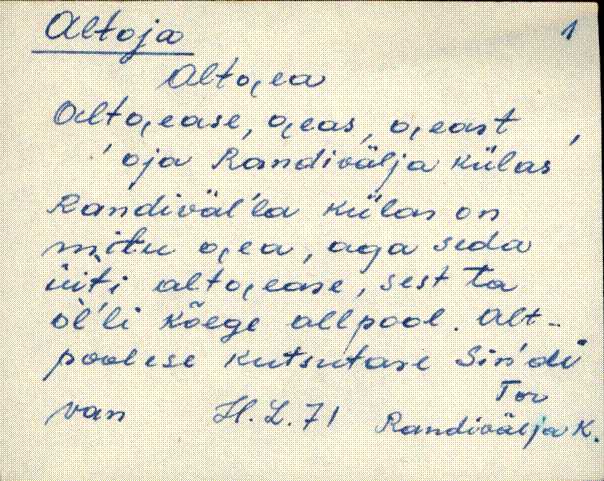 Altoja 1
Alto̭ea
Alto̭ease, o̭eas, o̭east,
'oja Randivälja külas
Randiväl'la külan on
mitu o̭ea, aga seda
üiti alto̭ease, sest ta
òl'li kõege allpool. Alt-
poolese kutsutase Sin'di
Tor
van H.L.71 Randivälja k.